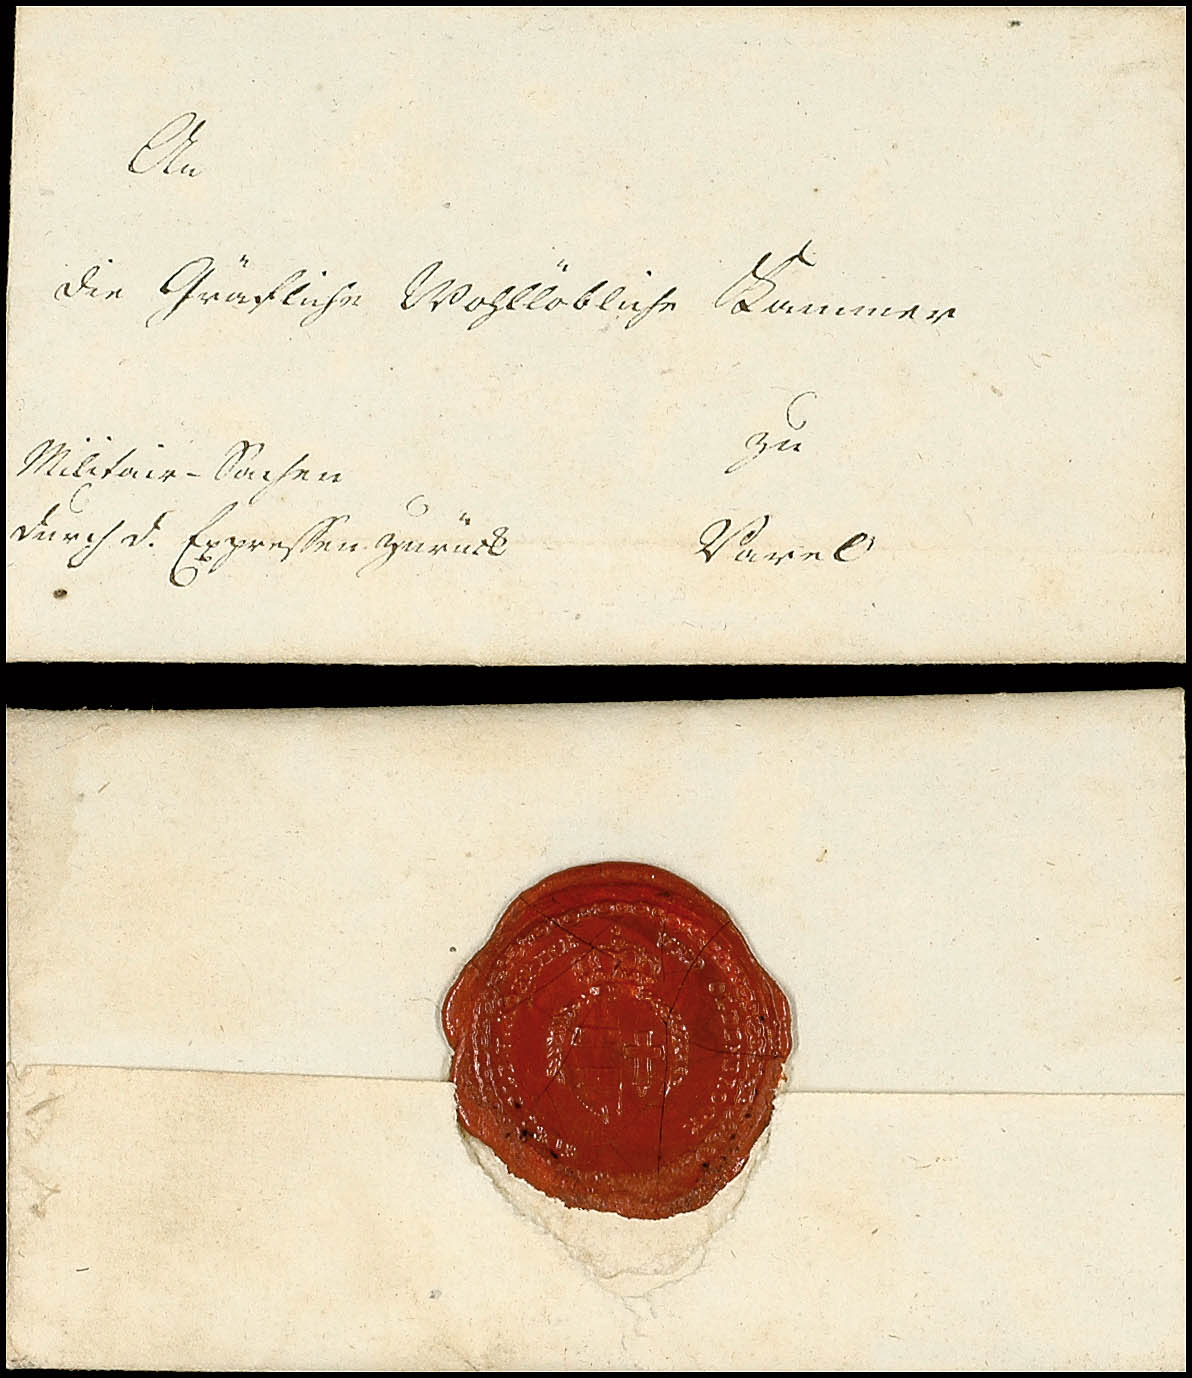 An
die Gräfliche Wohllöbliche Kammer
zu
Varel
Militair-Sachen
durch d. Expressen zurück